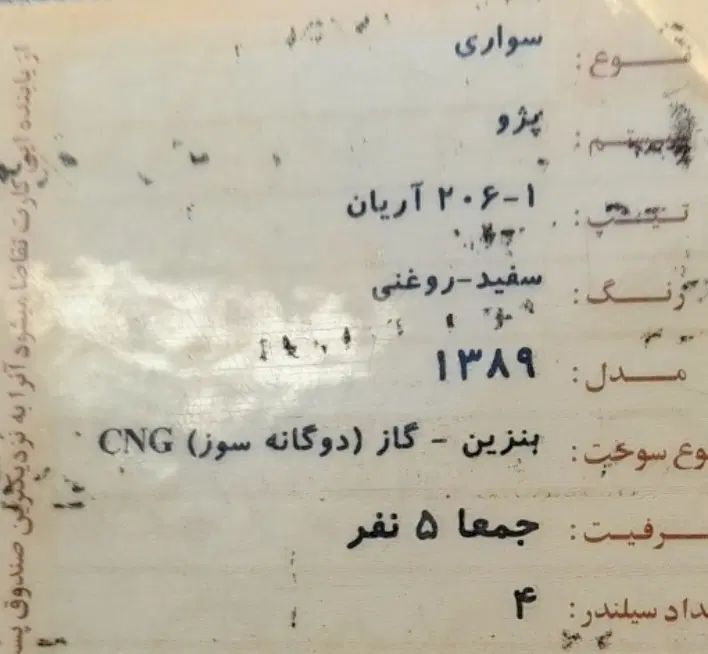 نوع: سواری
سیستم: پژو
تیپ: ۲۰۶-۱ آریان
رنگ: سفید-روغنی
مدل: ۱۳۸۹
نوع سوخت: بنزین - گاز (دوگانه سوز) CNG
ظرفیت: جمعا ۵ نفر
تعداد سیلندر: ۴
از یابنده این کارت تقاضا میشود آنرا به نزدیکترین صندوق